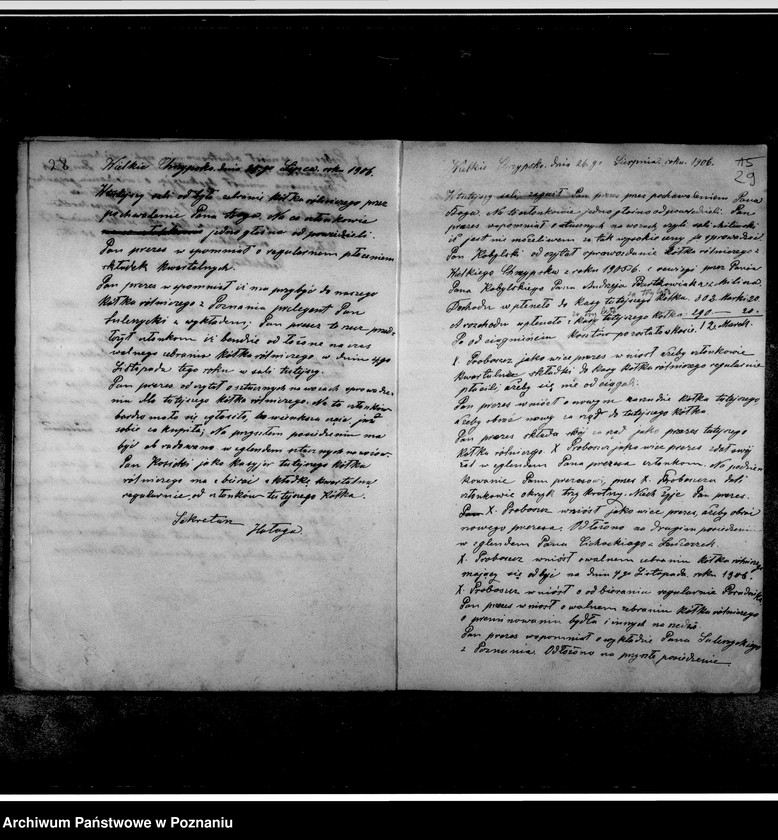 28
Wielkie Chrzypsko. dnia Lipca. roku 1906.
W tutejszej sali od było zebranie kółka rólniczego przez
pochwalenie Pana Boga. Na co członkowie
jedno głośna od powiedzieli.
Pan prezes w spomniał o regularnem płaceniem
składek kwartalnych.
Pan prezes w spomniał iż ma przybyć do naszego
Kółka rólniczego z Poznania prelegent Pan
Sulerzycki z wykładem; Pan prezes to rzecz przed
łożył członkom iż bendzie od łożone na czas
walnego zebrania Kółka rólniczego w dniu 4go
Listopada tego roku w sali tutejszy.
Pan prezes od czytał o sztucznych nawozach sprowadze-
niu dla tutejszego kółka rólniczego. Na to członków
bardzo mało się zgłosiło, bo większa część już
sobie zakupiła; Na przyszłem posiedzeniu ma
być ob radowano w zglendem sztucznych nawozów.
Pan Kosicki jako kasyjer tutejszego Kółka
rólniczego ma zbierać składkę kwartalną
regularnie od członków tutejszego Kółka.
Sekretarz
Hałaga.
15
29
Wielkie Chrzypsko. dnia 26.go Sierpnia. roku. 1906.
W tutejszej sali, zagaił Pan prezes przez pochwaleniem Pana
Boga. Na to członkowie jedno głośno odpowiedzieli. Pan
prezes wspomniał o sztucznych na wozach czyli sali chilijski
iż jest nie możliwem za tak wysokie ceny je sprowadzić.
Pan Kobylski od czytał sprawozdanie Kółka rólniczego z
Wielkiego Chrzypska z roku 1905/6. i rewizyi przez Panów
Pana Kobylskiego Pana Andrzeja Pawłowiaka z Mylina.
za try lata
Dochodu w płeneło do kasy tutejszego Kółka. 302. Marki 20.
za try lata
A rozchodu wpłeneło z kasy tutejszego Kółka. 290 — 20.
Po od ciągnięciem kosztów pozostało w kasie. 12. Marek.
X. Proboszcz jako wice prezes w niósł ażeby członkowie
kwartalnie składki do kasy tutejszego Kółka rólniczego regularnie
płacili; ażeby się nie od ciągali.
Pan prezes w niósł o nowym zarządzie kółka tutejszego
ażeby obrać nowy za rząd do tutejszego Kółka
Pan prezes składa swój za rąd jako prezes tutejszego
Kółka rólniczego X. Proboszcz jako wice prezes zdał swój
żal w zglendem Pana prezesa członkom. Na podzien
kowanie Panu prezesowi, przez X. Proboszcza dali
członkowie okrzyk trzy krotny. Niech Żyje Pan prezes.
X. Proboszcz wniósł jako wice prezes, ażeby obrać
nowego prezesa. Odłożono na drugiem posiedzeniu
w zglendem Pana Cichockiego z Łowczech.
X. Proboszcz wniósł o walnem zebraniu kółka rólniczego
mający się odbyć na dniu 4go Listopada. roku 1906.
X. Proboszcz wniósł o od bieraniu regularnie Poradnika
Pan prezes w niósł o walnem zebraniu Kółka rólniczego
o premiowaniu bydła i innych na rzędzi
Pan prezes wspomniał o wykładzie Pana Sulerzyckiego
z Poznania. Odłożono na przyszłe posiedzenie
Archiwum Państwowe w Poznaniu